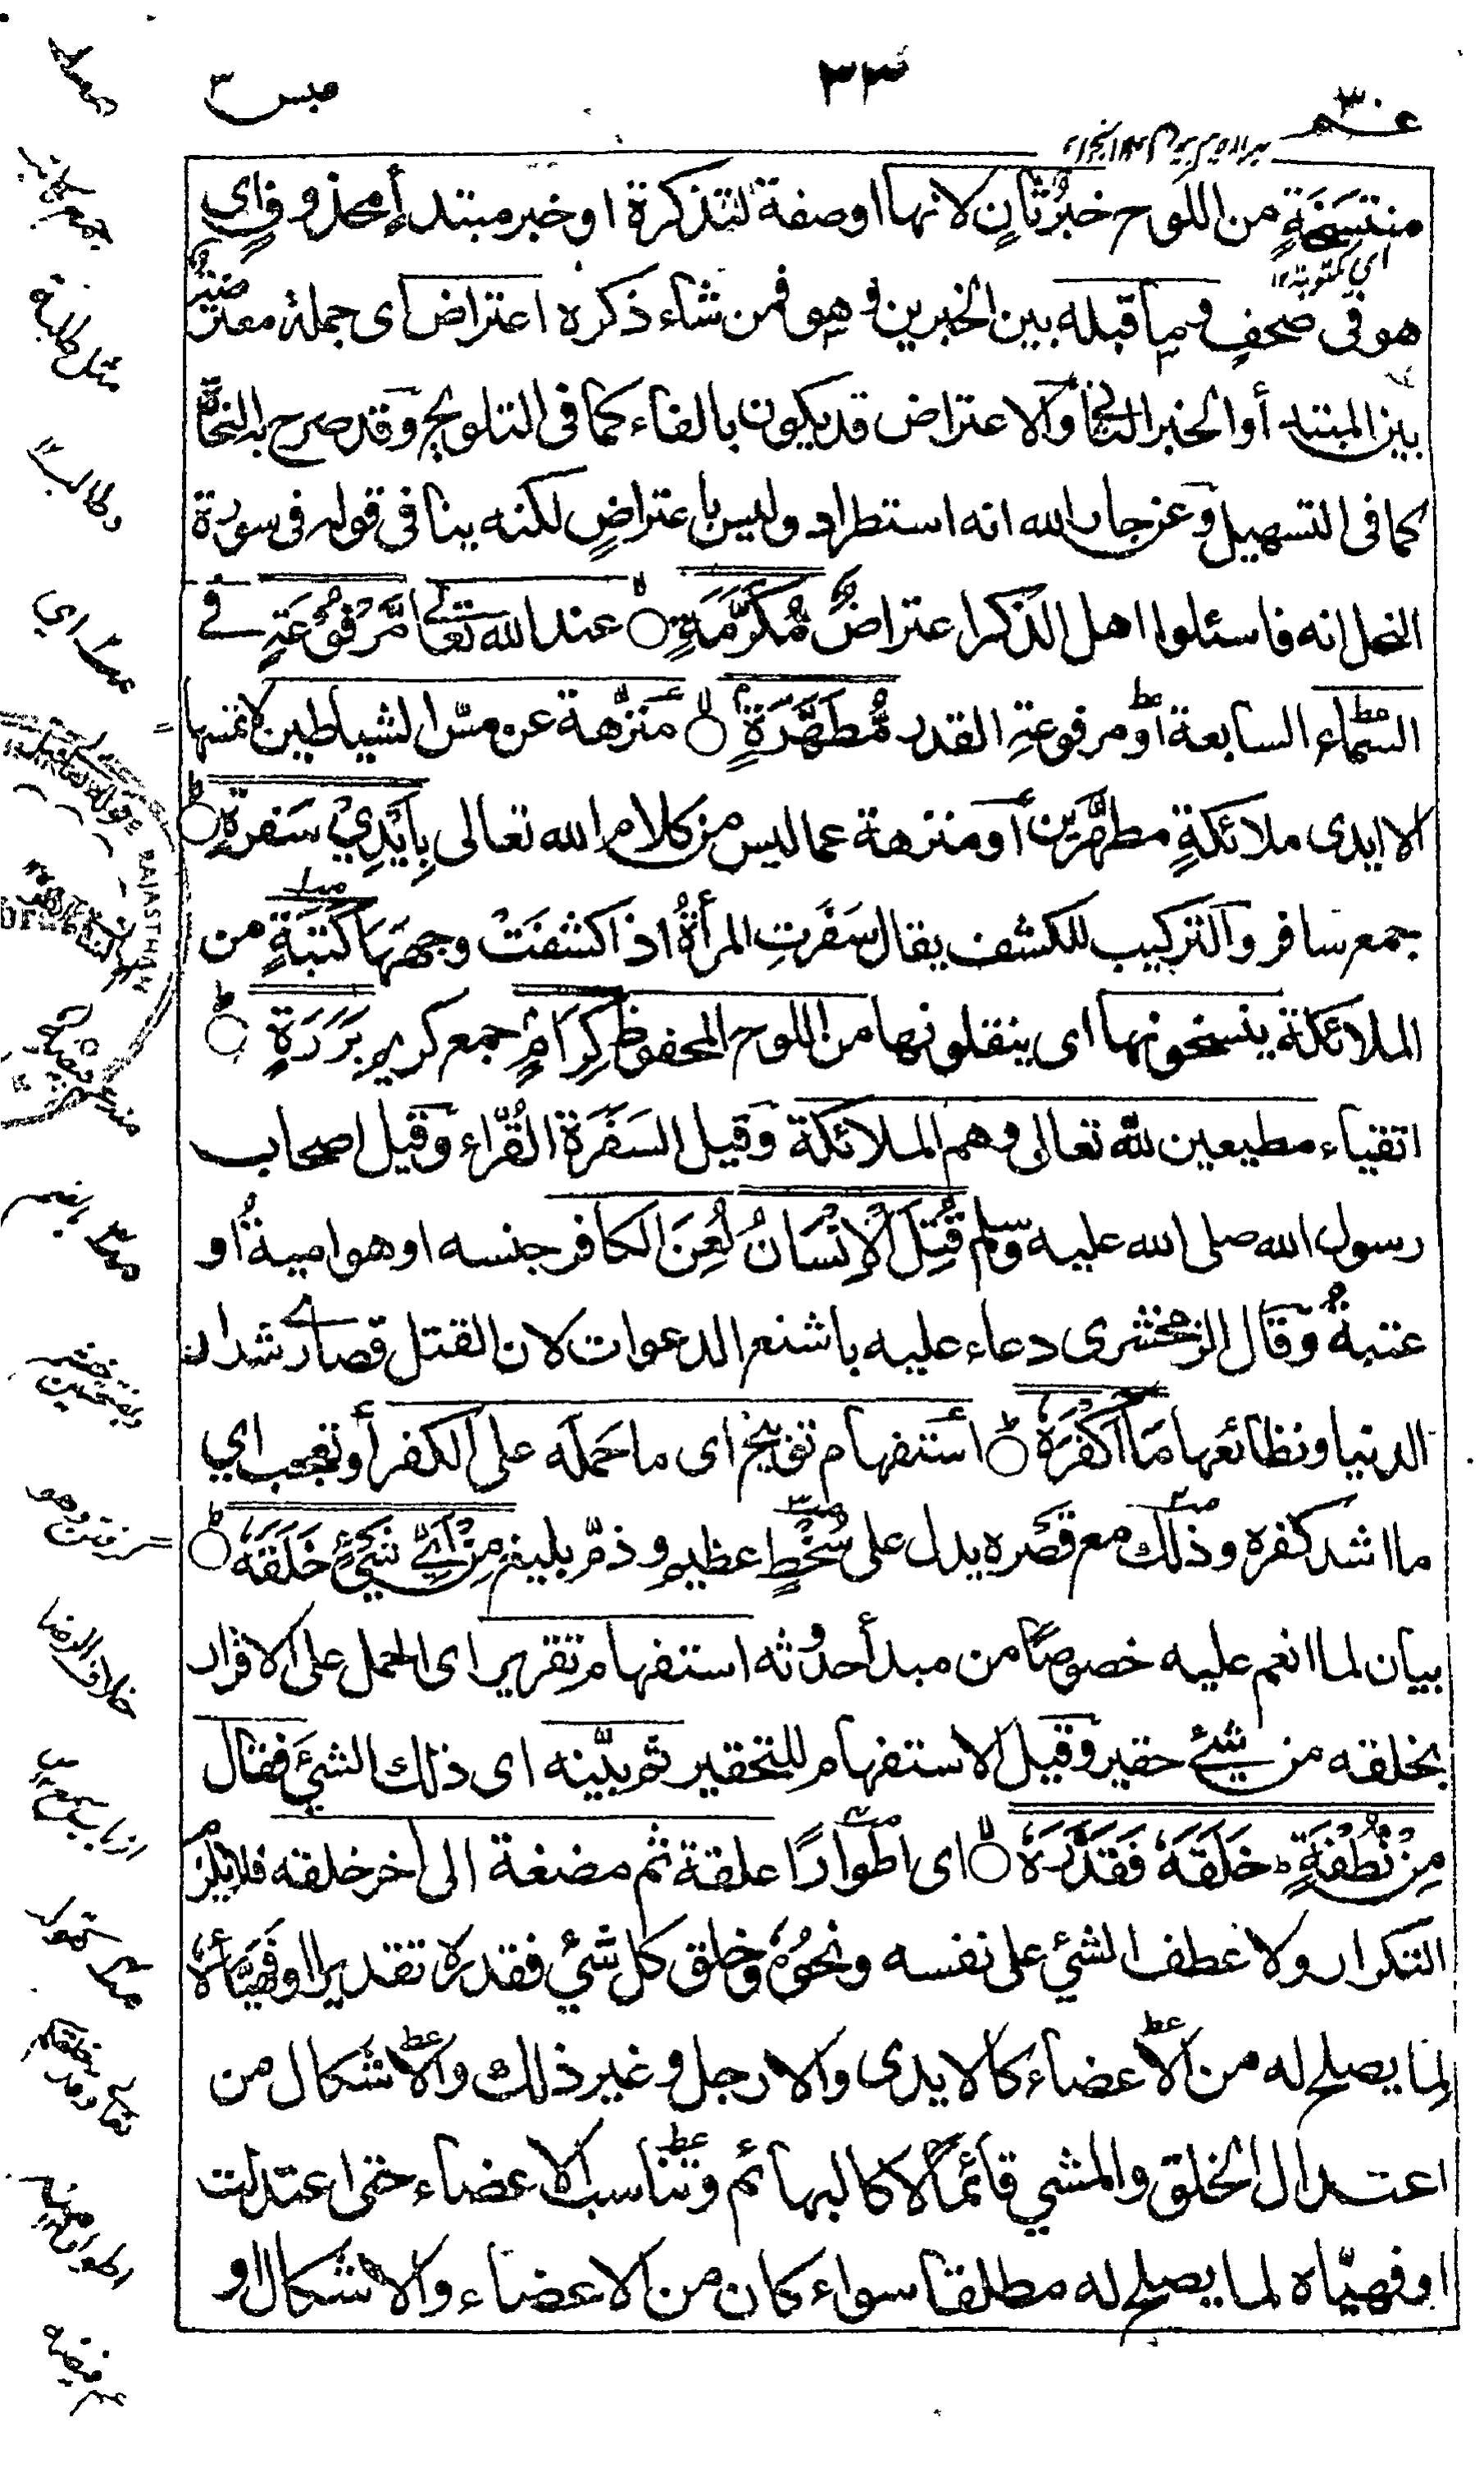 عبس ٣
٣٣
عم ٣٠
منتسَخَةٍ من اللوح خبرٌ ثانٍ لانها او صفة لتذكرة او خبر مبتدأٍ محذوفٍ اي
اي مكتوبة ١٢
هو في صحفٍ وما قبله بين الخبرين وهو فمن شاء ذكره اعتراض اى جملة معترضة
بين المبتدأ والخبر النحا والاعتراض قد يكون بالفاء كما فى التلويح وقد صرح به النحاة
كما فى التسهيل وعن جار الله انه استطراد وليس باعتراضٍ لكنه ينافى قوله فى سورة
النحل انه فاسئلوا اهل الذكر اعتراضٌ مُّكَرَّمَةٍ عند الله تعالى مَّرْفُوْعَةٍ فے
السّماء السابعة او مرفوعةِ القدر مُّطَهَّرَةٍ منزّهة عن مسّ الشياطين لا تمسها
الا ايدى ملائكةٍ مطهّرين أو منزهة عما ليس من كلام الله تعالى بِاَيْدِيْ سَفَرَةٍ
جمع سافر والتركيب للكشف يقال سَفَرَتِ المرأةُ اذا كشفَتْ وجهَهَا كَتَبَةٍ من
الملائكة ينسخونها اى ينقلونها من اللوح المحفوظ كِرَامٍ جمع كريم بَرَرَةٍ
اتقياء مطيعين لله تعالى وهم الملائكة وقيل السَفَرَة القُرّاء وقيل اصحاب
رسول الله صلى الله عليه وسلم قُتِلَ الْاِنْسَانُ لُعِنَ الكافر جنسه او هو امية أو
عتبة وقال الزمخشرى دعاء عليه باشنع الدعوات لان القتل قصارے شدائد
الدنيا ونظائعها مَا اَكْفَرَهٗ استفهام توبيخ اى ما حَمَلَه على الكفر أو تعجب اي
ما اشد كفره وذلك مع قَصَره يدل على سُخْطٍ عظيم وذمّ بليغ مِنْ اَيِّ شَيْءٍ خَلَقَهٗ
بيان لما انعم عليه خصوصًا من مبدأ حدوثه استفهام تقرير اى الحمل على الاقرار
بخلقه من شيئے حقير وقيل الاستفهام للتحقير ثم بيّنه اى ذلك الشيئ فقال
مِنْ نُّطْفَةٍ خَلَقَهٗ فَقَدَّرَهٗ اى اطوارًا علقة ثم مضغة الى اٰخر خلقه فلا يلزم
التكرار ولا عطف الشيئ على نفسه ونحوُهٗ وخلق كل شيْ فقدره تقديرا او فهيّأه
لِما يصلح له من الاعضاء كالايدى والارجل وغير ذلك والاشكال من
اعتدال الخلق والمشي قائماً لا كالبهائم وتناسب الاعضاء حتى اعتدلت
او فهيّاه لما يصلح له مطلقا سواء كان من الاعضاء والاشكال او
خلاف الرضا
RAJASTHAN